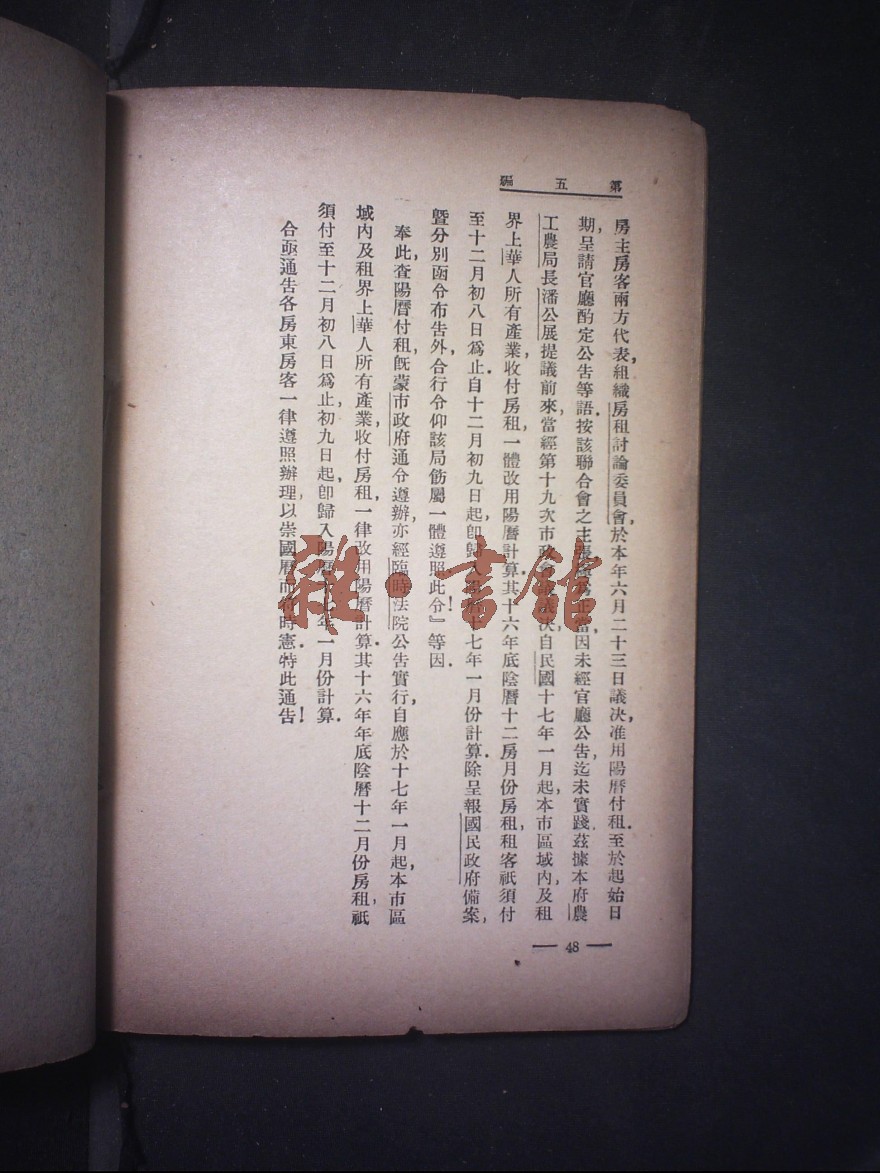 第五編
房主房客兩方代表,組織房租討論委員會,於本年六月二十三日議決,准用陽曆付租.至於起始日
期,呈請官廳酌定公告等語.按該聯合會之主張
因未經官廳公告,迄未實踐.茲據本府農
工農局長潘公展提議前來,當經第十九次市政
決,自民國十七年一月起,本市區域內,及租
界上華人所有產業,收付房租,一體改用陽曆計算.其十六年底陰曆十二房月份房租,租客祇須付
至十二月初八日爲止.自十二月初九日起,卽歸入陽曆十七年一月份計算.除呈報國民政府備案,
曁分別函令布告外,合行令仰該局飭屬一體遵照此令!』等因.
奉此,查陽曆付租,旣蒙市政府通令遵辦,亦經臨時法院公告實行,自應於十七年一月起,本市區
域內及租界上華人所有產業,收付房租,一律改用陽曆計算.其十六年年底陰曆十二月份房租,祇
須付至十二月初八日爲止,初九日起,卽歸入陽曆十七年一月份計算.
合亟通告各房東房客一律遵照辦理,以崇國曆而符時憲.特此通告!
— 48 —
雜·書館